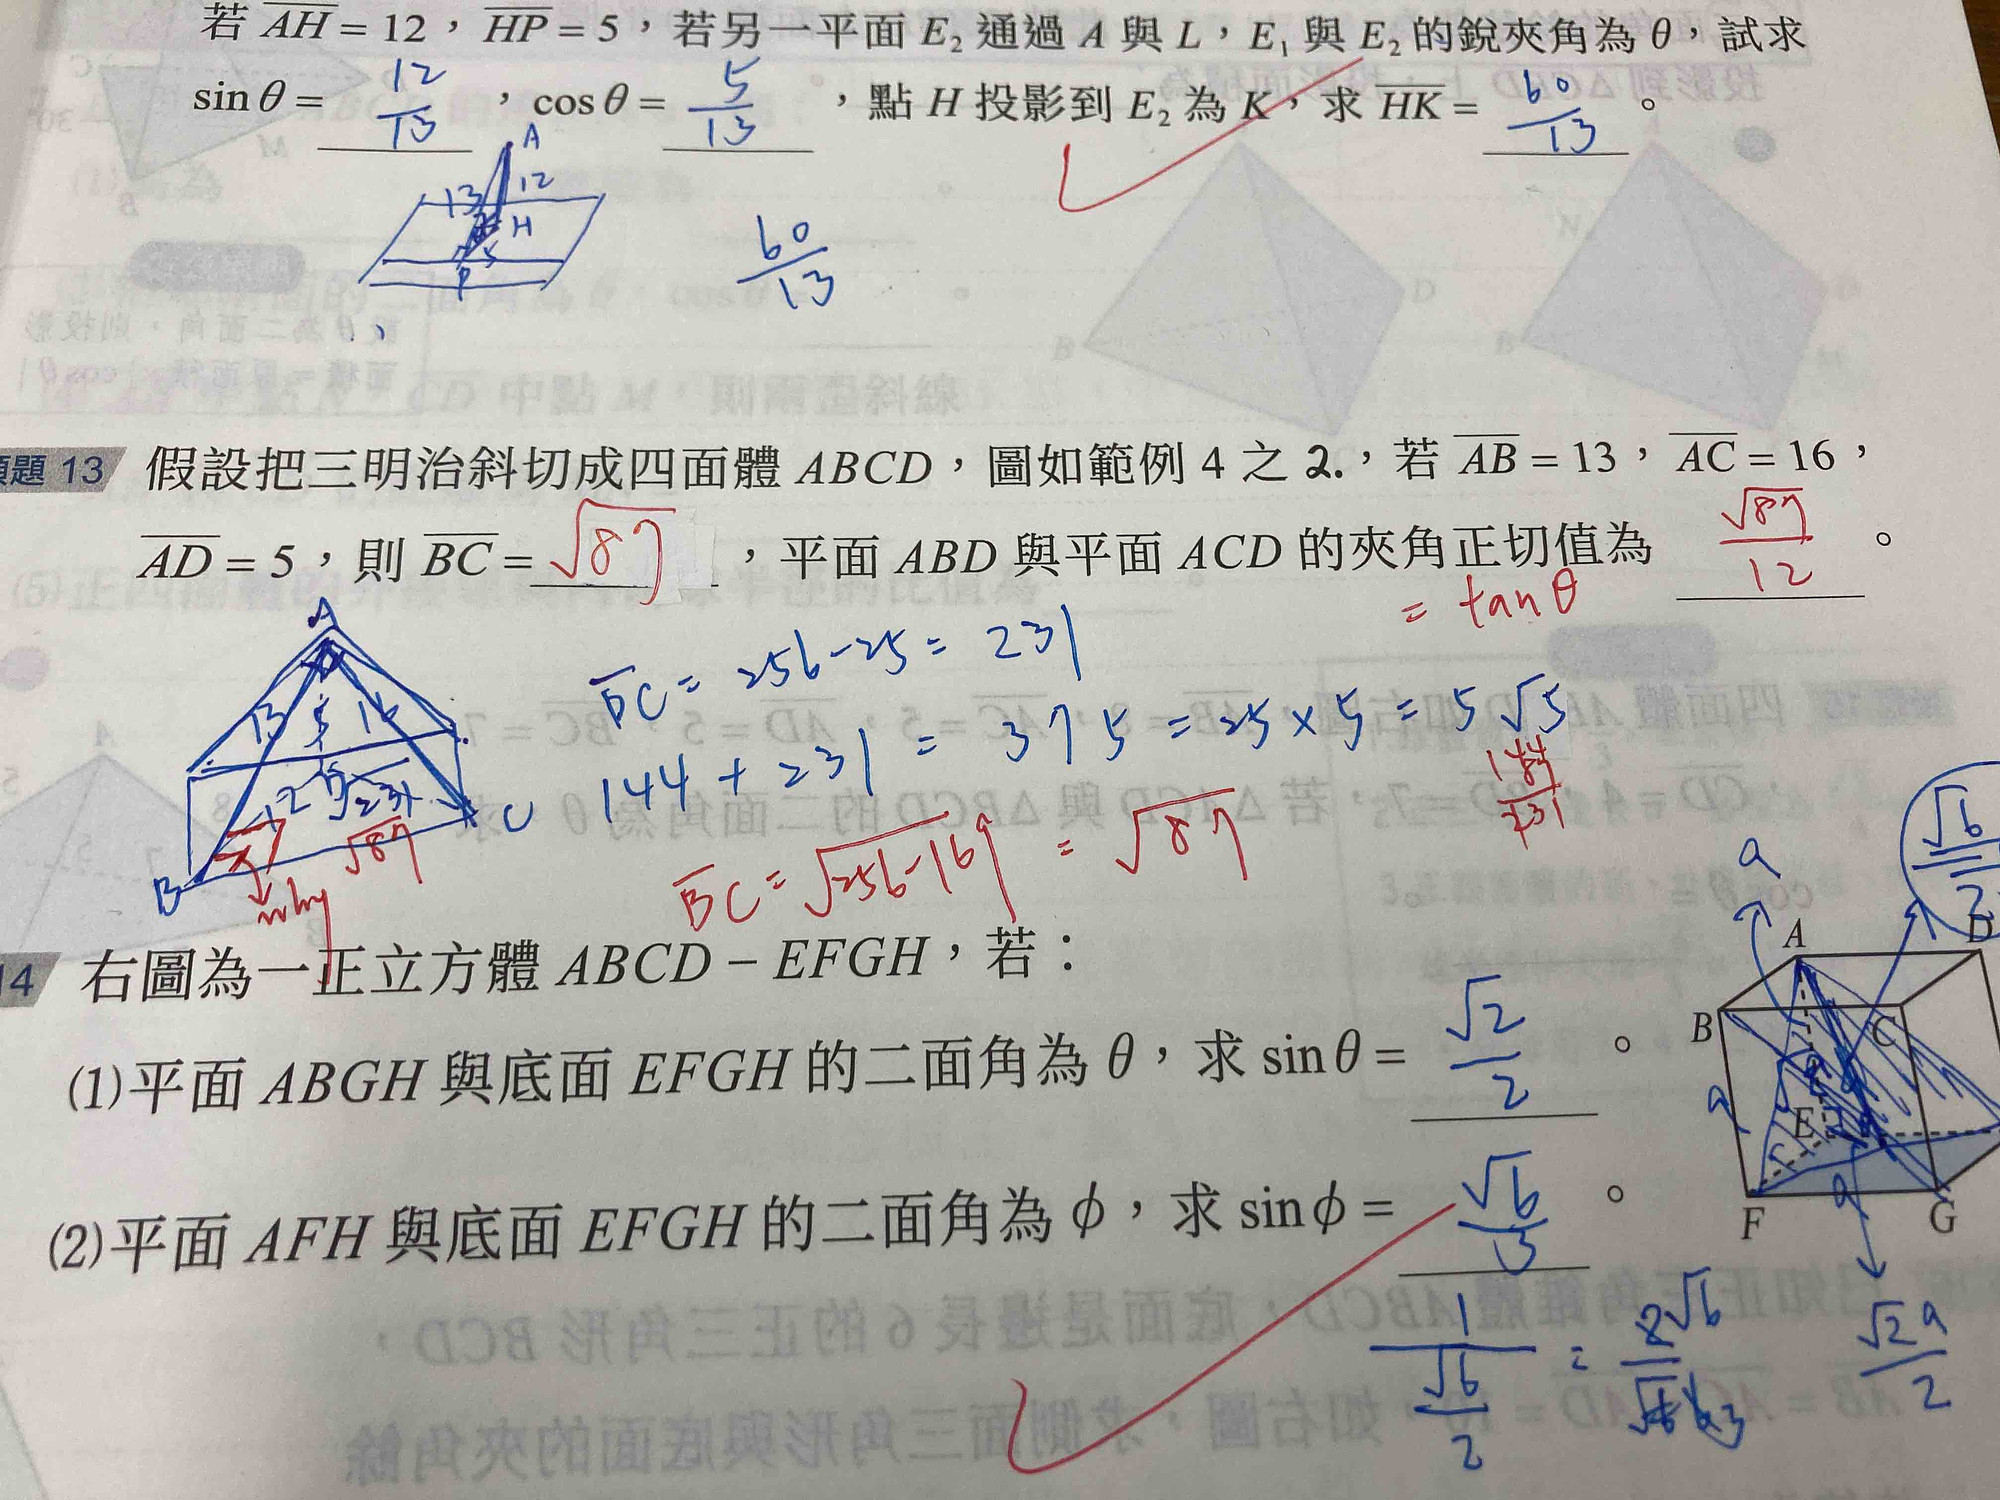 若 AH = 12，HP = 5，若另一平面 E₂ 通過 A 與 L，E₁ 與 E₂ 的銳夾角為 θ，試求
sin θ = 12/13，cos θ = 5/13，點 H 投影到 E₂ 為 K，求 HK = 60/13。
A
13 12
H
5
P
60/13
題 13 假設把三明治斜切成四面體 ABCD，圖如範例 4 之 2.，若 AB = 13，AC = 16，
AD = 5，則 BC = √87，平面 ABD 與平面 ACD 的夾角正切值為 √87/12。
= tan θ
A
13 5 16
12 √231
B C
√87
why
BC = 256-25 = 231
144 + 231 = 375 = 25 × 5 = 5√5
144/231
BC = √256-169 = √87
14 右圖為一正立方體 ABCD－EFGH，若：
(1)平面 ABGH 與底面 EFGH 的二面角為 θ，求 sin θ = √2/2。
(2)平面 AFH 與底面 EFGH 的二面角為 ϕ，求 sin ϕ = √6/3。
1/(√6/2) = 2√6/√6
√2a/2
a
√6/2
A D
B C
a
E
F G